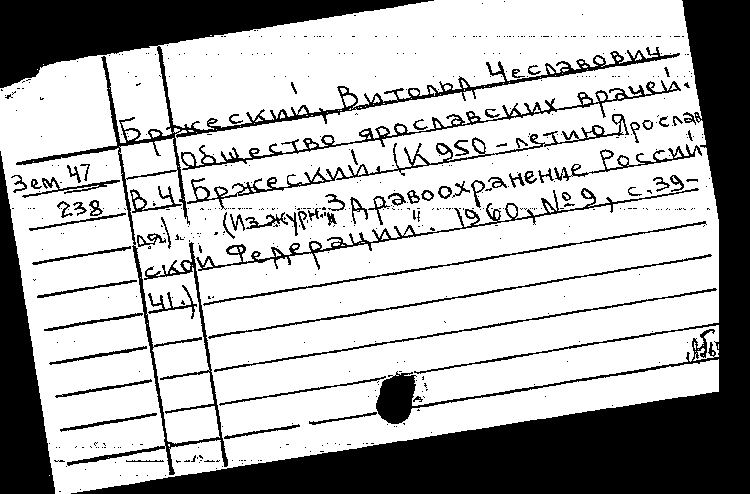 Бржеский, Витольд Чеславович
Общество ярославских врачей.
Зем 47
238
В.Ч. Бржеский. (К 950-летию Ярослав
ля). (Из журн. "Здравоохранение Россий
ской Федерации". 1960, №9, с.39-
41.).